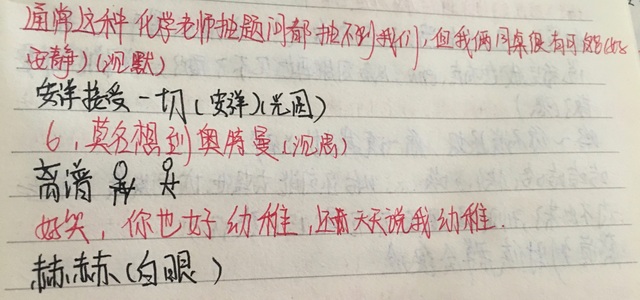 通常这种化学老师抽题问都抽不到我们,但我俩同桌很有可能(好
安静)(沉默)
安详接受一切(安详)(光圈)
6,莫名想到奥特曼(沉思)
离谱
好笑,你也好幼稚,还天天说我幼稚.
赫赫(白眼)